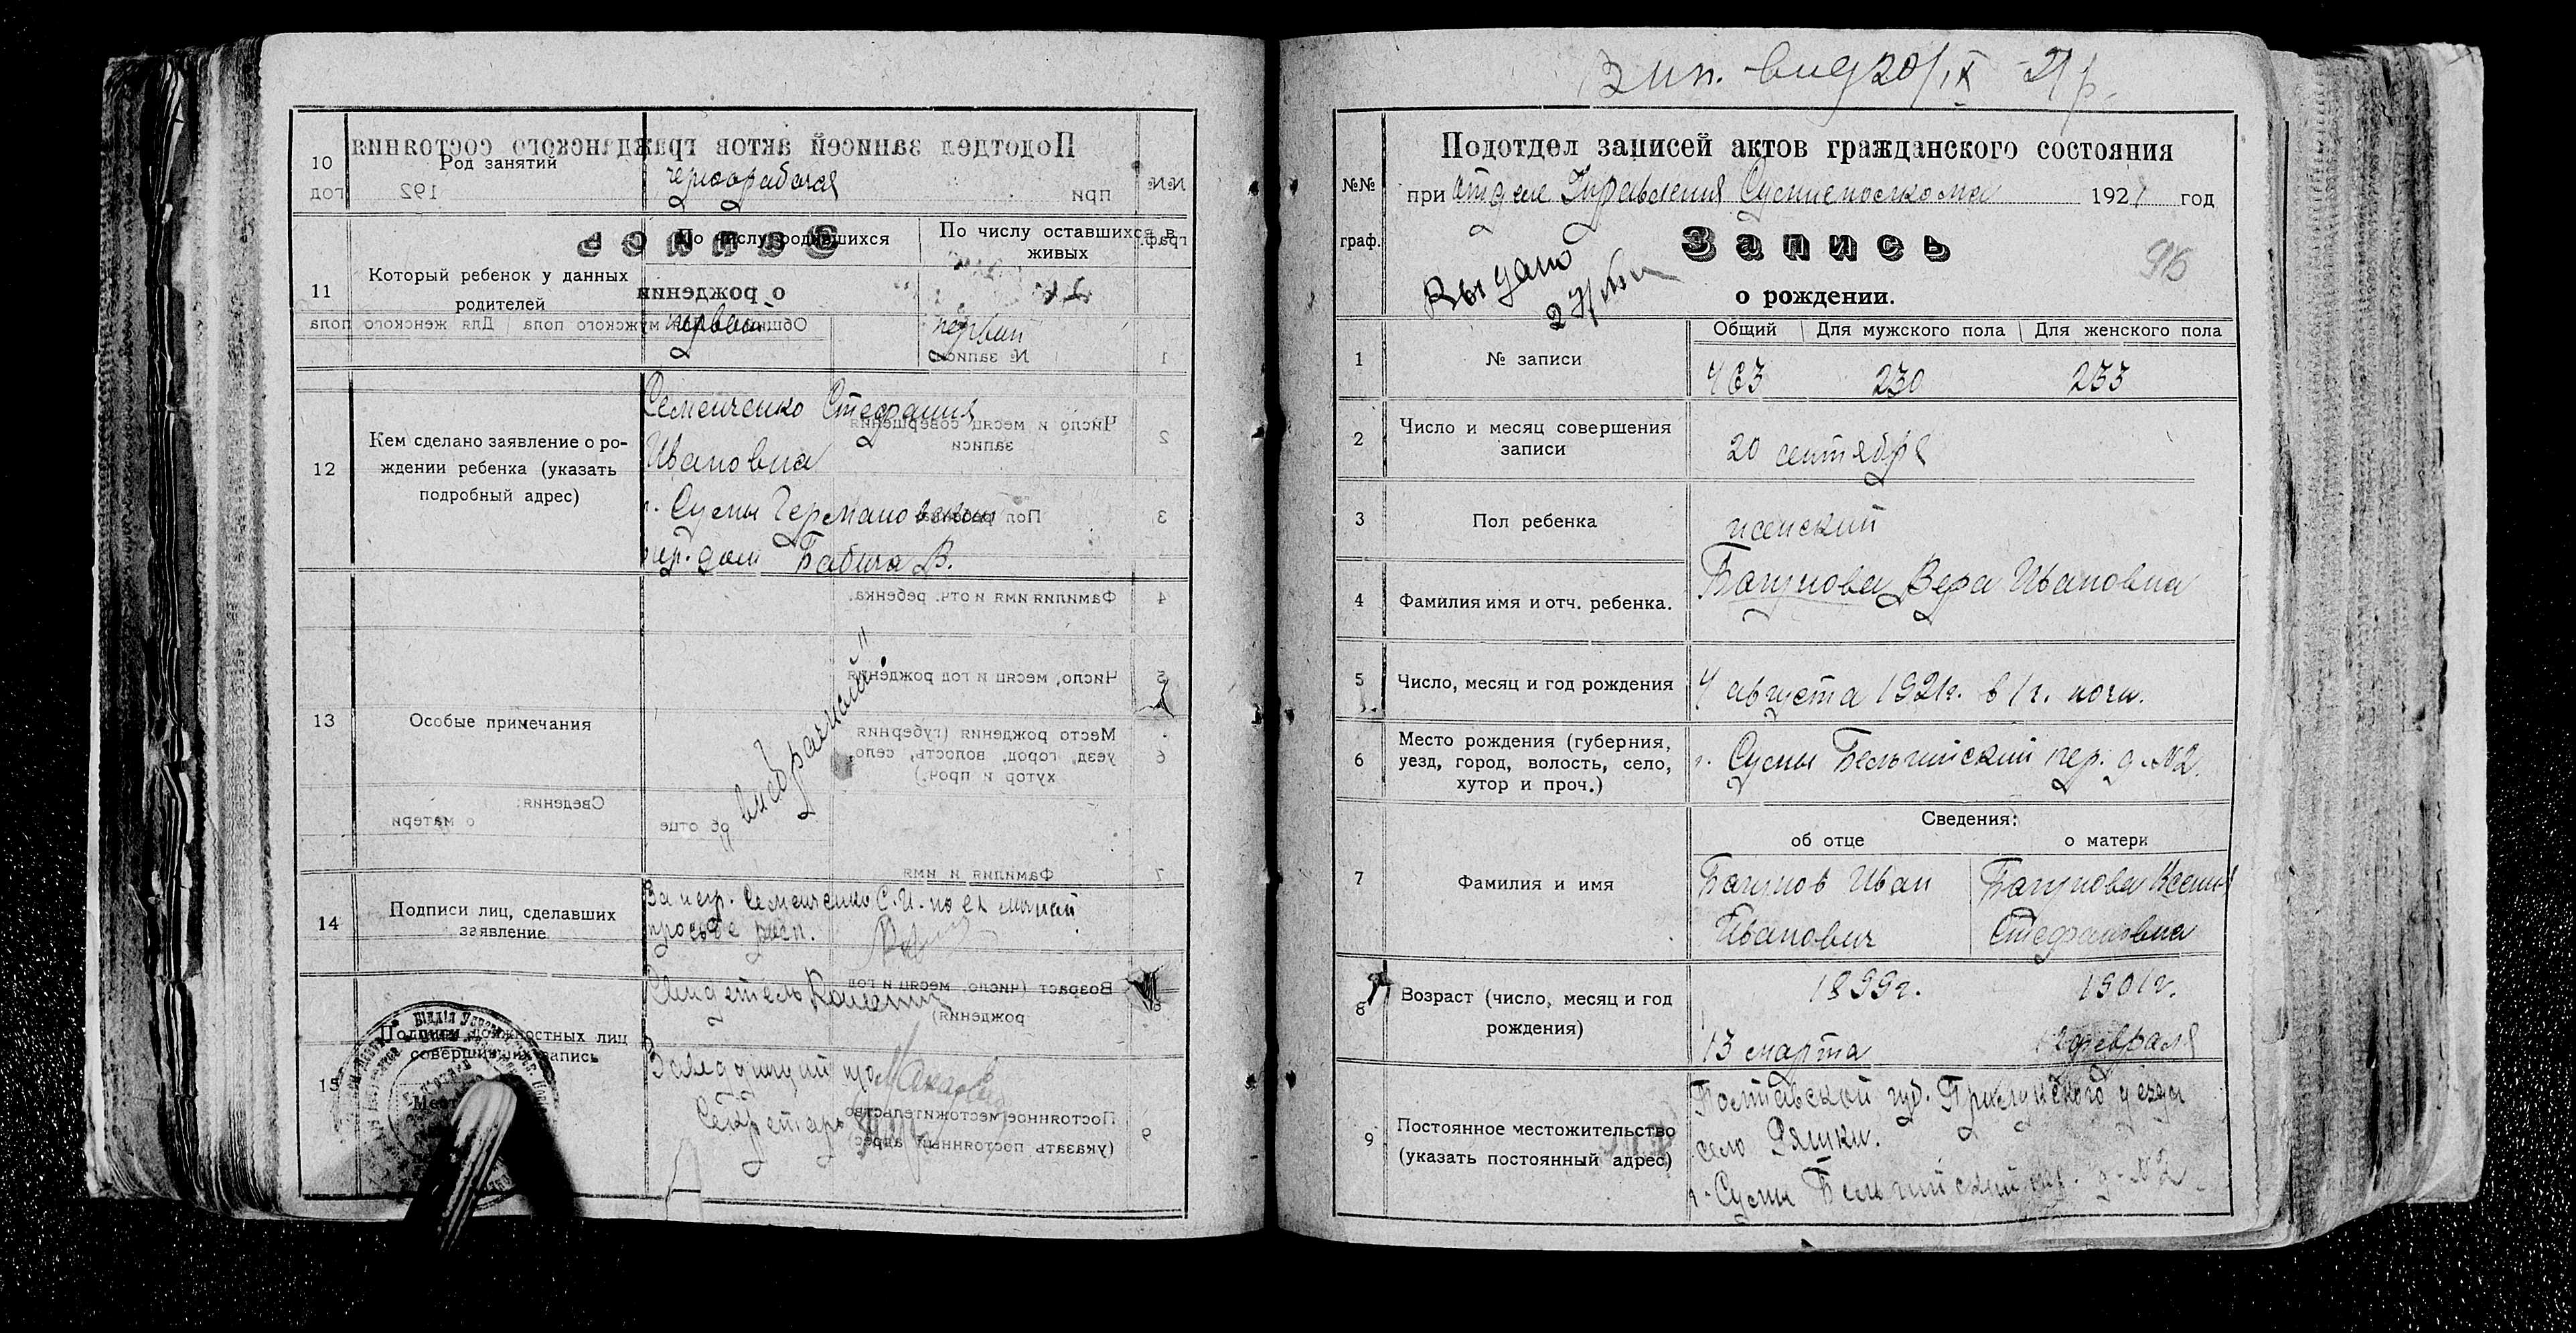 10
Род занятий
чернорабочая
11
Который ребенок у данных
родителей
По числу родившихся
По числу оставшихся в
живых
первый
первый
12
Кем сделано заявление о ро-
ждении ребенка (указать
подробный адрес)
Семенченко Стефания
Ивановна
г. Сумы Германовский
пер. дом Бабича В.
13
Особые примечания
внебрачный
14
Подписи лиц, сделавших
заявление
За негр. Семенченко С.И. по ея личной
просьбе расп.
15
Подписи должностных лиц
совершивших запись
Свидетель
Заведующий
Секретарь
Вип. вид 20/IX 21 р.
№№
граф.
Подотдел записей актов гражданского состояния
при отделе Управления Сумисполкома 1921 год
Запись
о рождении.
Выдано
96
1
№ записи
Общий
Для мужского пола
Для женского пола
463
230
233
2
Число и месяц совершения
записи
20 сентября
3
Пол ребенка
женский
4
Фамилия имя и отч. ребенка.
Багунова Вера Ивановна
5
Число, месяц и год рождения
4 августа 1921г. в 1 г. ночи.
6
Место рождения (губерния,
уезд, город, волость, село,
хутор и проч.)
г. Сумы Бельгийский пер. д. №2.
Сведения:
об отце
о матери
7
Фамилия и имя
Багунов Иван
Иванович
Багунова Ксения
Стефановна
8
Возраст (число, месяц и год
рождения)
1899г.
13 марта
1901г.
февраля
9
Постоянное местожительство
(указать постоянный адрес)
Полтавской губ. Прилукского уезда
село Ряшки.
г. Сумы Бельгийский пер. д. №2